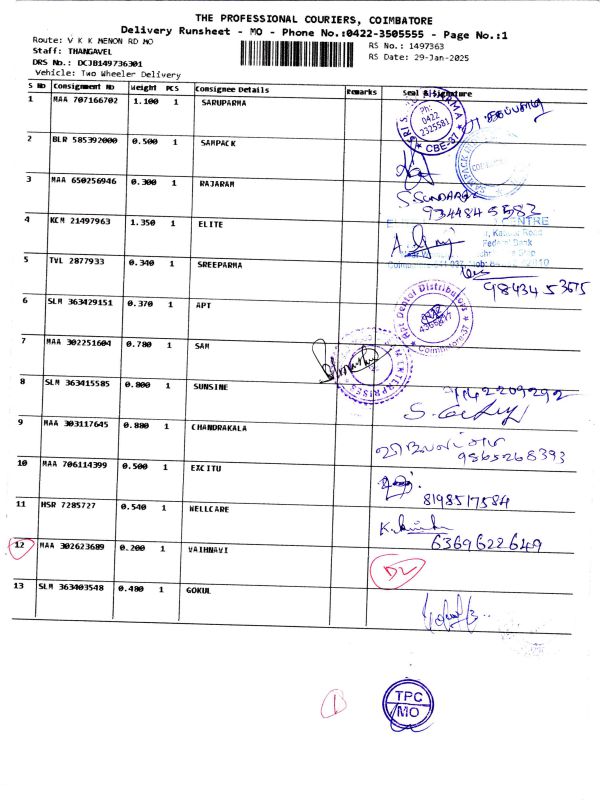 THE PROFESSIONAL COURIERS, COIMBATORE
Delivery Runsheet - MO - Phone No.:0422-3505555 - Page No.:1
Route: V K K MENON RD MO
RS No.: 1497363
Staff: THANGAVEL
RS Date: 29-Jan-2025
DRS No.: DCJB149736301
Vehicle: Two Wheeler Delivery
S No Consignment No Weight PCS Consignee Details Remarks Seal & Signature
1 MAA 707166702 1.100 1 SARUPARMA
Ph: 0422 2325581
CBE-37
2 BLR 585392000 0.500 1 SAMPACK
3 MAA 650256946 0.300 1 RAJARAM
9344845582
4 KCM 21497963 1.350 1 ELITE
CENTRE
Federal Bank
5 TVL 2877933 0.340 1 SREEPARMA
9843453675
6 SLM 363429151 0.370 1 APT
Dental Distributors
Coimbatore-37
7 MAA 302251604 0.780 1 SAM
ENTERPRISES
8 SLM 363415585 0.800 1 SUNSINE
9 MAA 303117645 0.880 1 CHANDRAKALA
9865268393
10 MAA 706114399 0.500 1 EXCITU
8198517584
11 HSR 7285727 0.540 1 WELLCARE
6369622649
12 MAA 302623689 0.200 1 VAIHNAVI
DL
13 SLM 363403548 0.480 1 GOKUL
TPC
MO
1